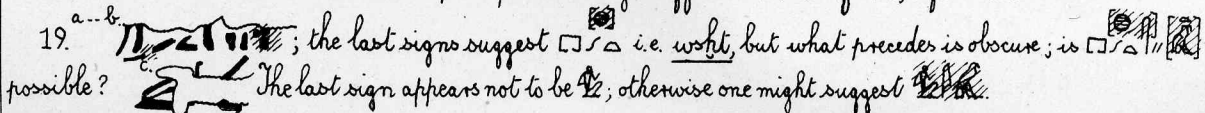 19. a---b. ; the last signs suggest i.e. wsḫt, but what precedes is obscure; is
possible? c. The last sign appears not to be ; otherwise one might suggest .